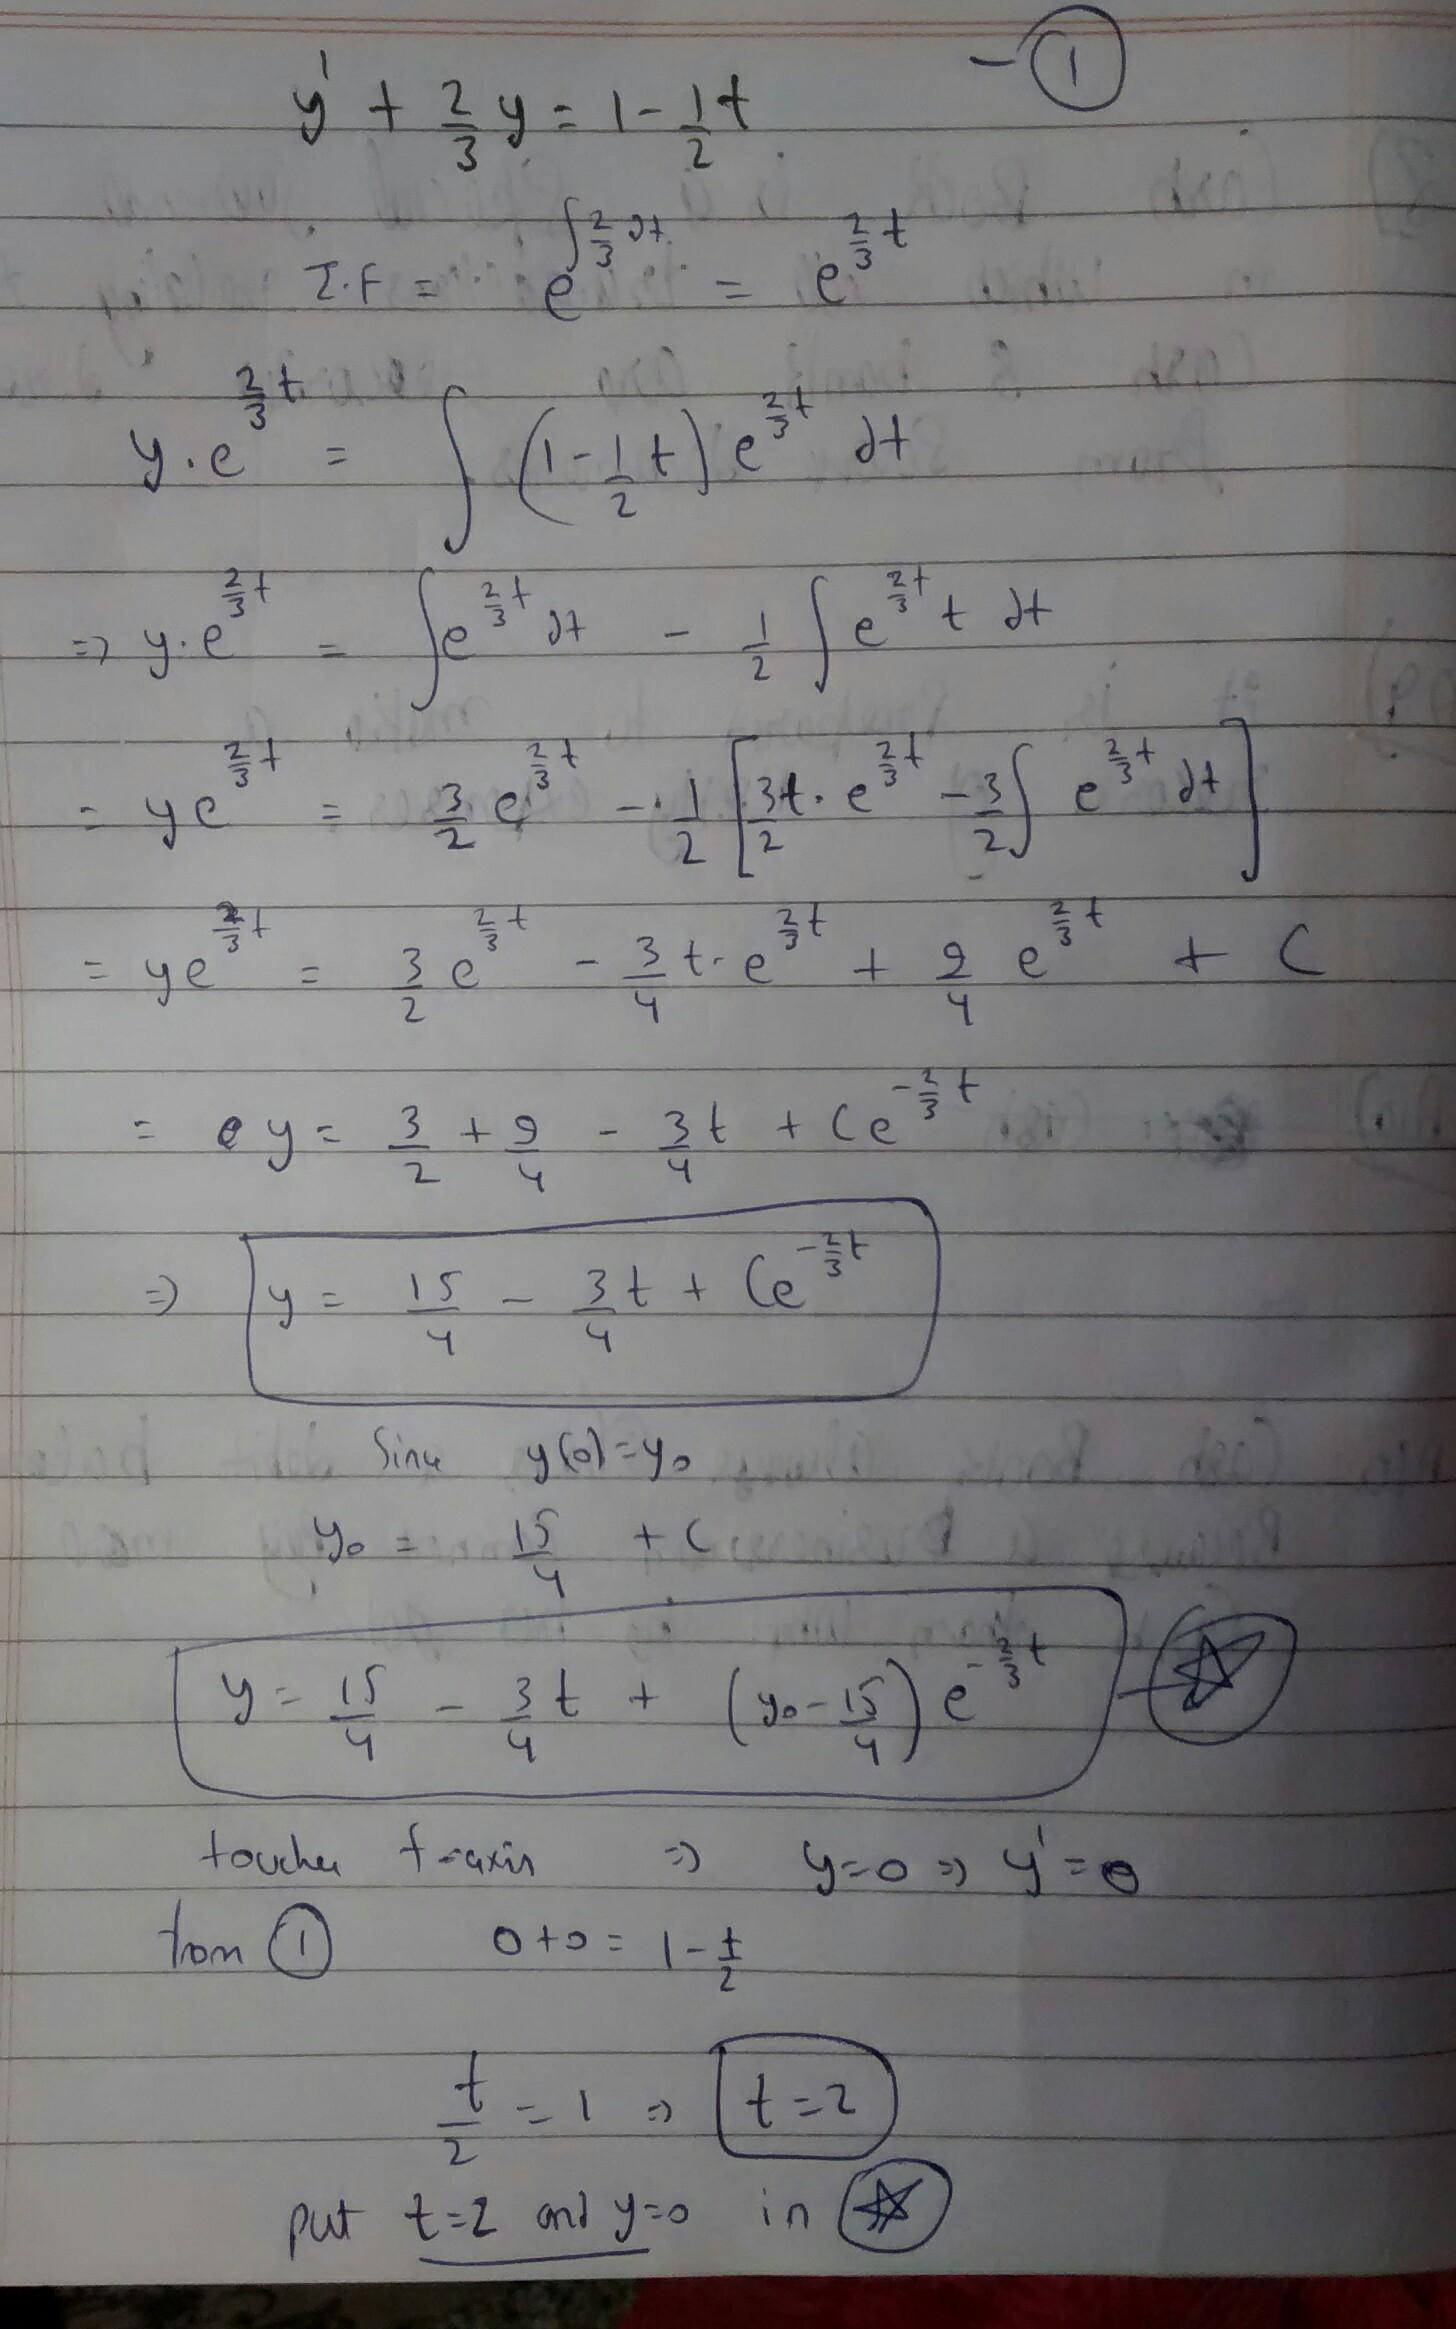 y' + 2/3 y = 1 - 1/2 t - ①
I.F = e^{∫ 2/3 dt} = e^{2/3 t}
y·e^{2/3 t} = ∫ (1 - 1/2 t) e^{2/3 t} dt
⇒ y·e^{2/3 t} = ∫ e^{2/3 t} dt - 1/2 ∫ e^{2/3 t} t dt
= ye^{2/3 t} = 3/2 e^{2/3 t} - 1/2 [3t/2 · e^{2/3 t} - 3/2 ∫ e^{2/3 t} dt]
= ye^{2/3 t} = 3/2 e^{2/3 t} - 3/4 t· e^{2/3 t} + 9/4 e^{2/3 t} + C
= y = 3/2 + 9/4 - 3/4 t + Ce^{-2/3 t}
⇒ y = 15/4 - 3/4 t + Ce^{-2/3 t}
Since y(0) = y₀
y₀ = 15/4 + C
y = 15/4 - 3/4 t + (y₀ - 15/4) e^{-2/3 t} - ☆
touches t-axis ⇒ y=0 ⇒ y' = 0
from ① 0+0 = 1 - t/2
t/2 = 1 ⇒ t=2
put t=2 and y=0 in ☆